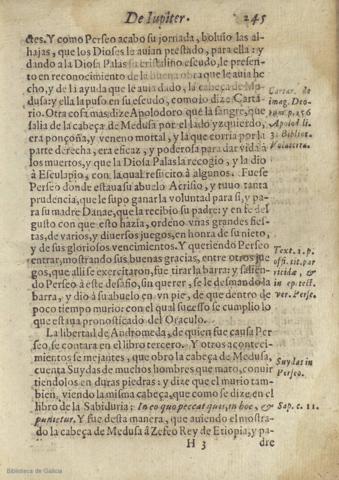 De Iupiter. 245
ctes. Y como Perseo acabo su jornada, boluio las al-
hajas, que los Dioses le auian prestado, para ella: y
dando a la Diosa Palas su cristalino escudo, le presen-
to en reconocimiento de la buena obra que le auia he
cho, y de la ayuda que le auia dado, la cabeça de Me-
dusa: y ella la puso en su escudo, como lo dize Carta-
rio. Otra cosa mas dize Apolodoro que la sangre, que
salia de la cabeça de Medusa por el lado yzquierdo,
era ponçoña, y veneno mortal, y la que corria por la
parte derecha, era eficaz, y poderosa para dar vida à
los muertos, y que la Diosa Palas la recogio, y la dió
a Esculapio, con la qual resucito à algunos. Fuese
Perseo donde estaua su abuelo Acrisio, y tuuo tanta
prudencia, que le supo ganar la voluntad para si, y pa-
ra su madre Danae, que la recibio su padre: y en fe del
gusto con que esto hazia, ordeno vnas grandes fies-
tas, de varios, y diuersos juegos, en honra de su nieto,
y de sus gloriosos vencimientos. Y queriendo Perseo
entrar, mostrando sus buenas gracias, entre otros jue
gos, que alli se exercitaron, fue tirar la barra: y salien-
do Perseo à este desafio, sin querer, se le desmando la
barra, y dió à su abuelo en vn pie, de que dentro de
poco tiempo murio: con el qual sucesso se cumplio lo
que estaua pronosticado del Oraculo.
La libertad de Andromeda, de quien fue causa Per
seo, se contara en el libro tercero. Y otros aconteci-
mientos semejantes, que obro la cabeça de Medusa,
cuenta Suydas de muchos hombres que mato, conuir
tiendolos en duras piedras: y dize que el murio tam-
bien, viendo la misma cabeça, que como se dize en el
libro de la Sabiduria: In eo quo peccat quis, in hoc, &
punietur. Y fue desta manera, que auiendo el mostra-
do la cabeça de Medusa à Zefeo Rey de Etiopia, y pa
H 3 dre
Cartar. de
imag. Deo-
rum p. 256
Apolod li.
3. Bibliot.
Text. 2. p.
offi. tit. par
ricidæ, &
in ep. tect.
ver. Perse.
Suydas in
Perseo.
Sap. c. 11.
Biblioteca de Galicia